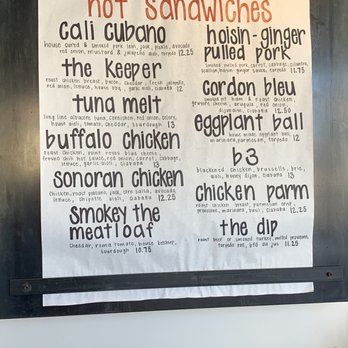 hot sandwiches
cali cubano
house cured & smoked pork loin, jack, pickle, avocado
red onion, mustard & jalapeño aioli, torpedo 12.25
the keeper
roast chicken breast, bacon, cheddar, fresh jalapeño,
red onion, lettuce, house bbq, garlic aioli, ciabatta 12
tuna melt
long line albacore tuna, cornichon, red onion, celery,
aioli, tomato, cheddar, sourdough 13
buffalo chicken
roast chicken, point reyes blue cheese,
hot sauce, red onion, carrot, cabbage,
lettuce, garlic aioli, ciabatta 13
sonoran chicken
chicken, roast poblano, jack, corn salsa, avocado,
lettuce, chipotle aioli, ciabatta 12.25
smokey the
meatloaf
cheddar, roma tomato, house ketchup,
sourdough 10.75
hoisin-ginger
pulled pork
smoked pulled pork, carrot, cabbage, cilantro,
scallion, hoisin ginger sauce, torpedo 11.75
cordon bleu
smoked pit ham & roast chicken,
gruyere cheese, arugula, red onion,
ciabatta 12.50
eggplant ball
house made eggplant ball,
marinara, torpedo 12
b3
blackened chicken, brussels, brie,
aioli, honey dijon, ciabatta 13
chicken parm
roast chicken breast, parmesan crisp,
provolone, marinara, basil, ciabatta 12.25
the dip
roast beef or smoked turkey, melted provolone,
torpedo roll, jus 11.25